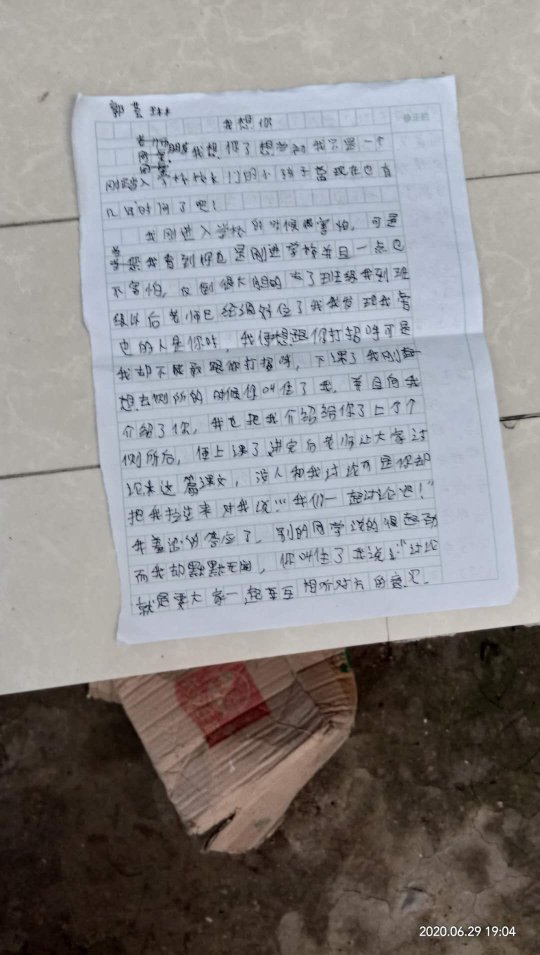 郭
我想你
我想你了想当初我只是一个
刚踏入学校校门的小孩子当现在也有
几时间了吧！
我刚进入学校的时候很害怕，可是
当我看到你也是刚进学校并且一点也
不害怕，反倒很大胆的去了班级我到班
级以后老师已经调好位了我我发现我旁
边的人是你时，我便想跟你打招呼可是
我却不敢跟你打招呼，下课了我刚
想去厕所的时候你叫住了我，并且向我
介绍了你，我也把我介绍给你了上个
厕所后，便上课了讲完后老师让大家讨
论来这篇课文，没人和我讨论可是你却
把我拉过来对我说：“我们一起讨论吧！”
我羞涩的答应了，别的同学说的很起劲
而我却默默无闻，你叫住了我说：“讨论
就是要大家一起互相听对方的意见。
2020.06.29 19:04